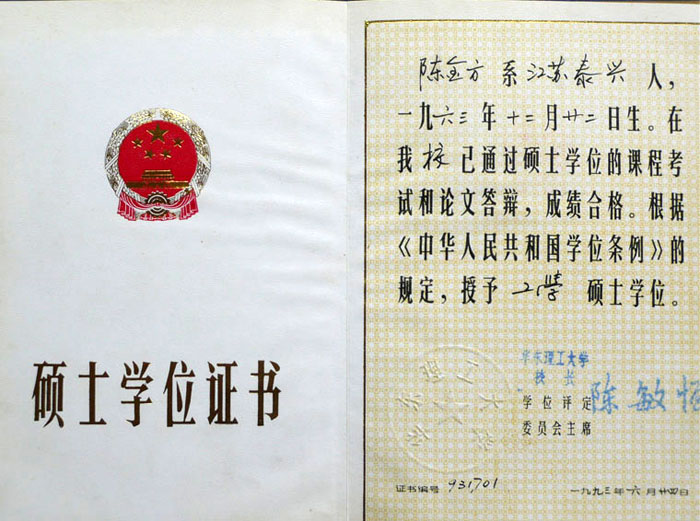 硕士学位证书
陈金方 系江苏泰兴 人，
一九六三年十二月廿二日生。在
我校已通过硕士学位的课程考
试和论文答辩，成绩合格。根据
《中华人民共和国学位条例》的
规定，授予 工学 硕士学位。
华东理工大学
校长
学位评定
委员会主席
陈敏恒
证书编号 931701
一九九三年六月廿四日